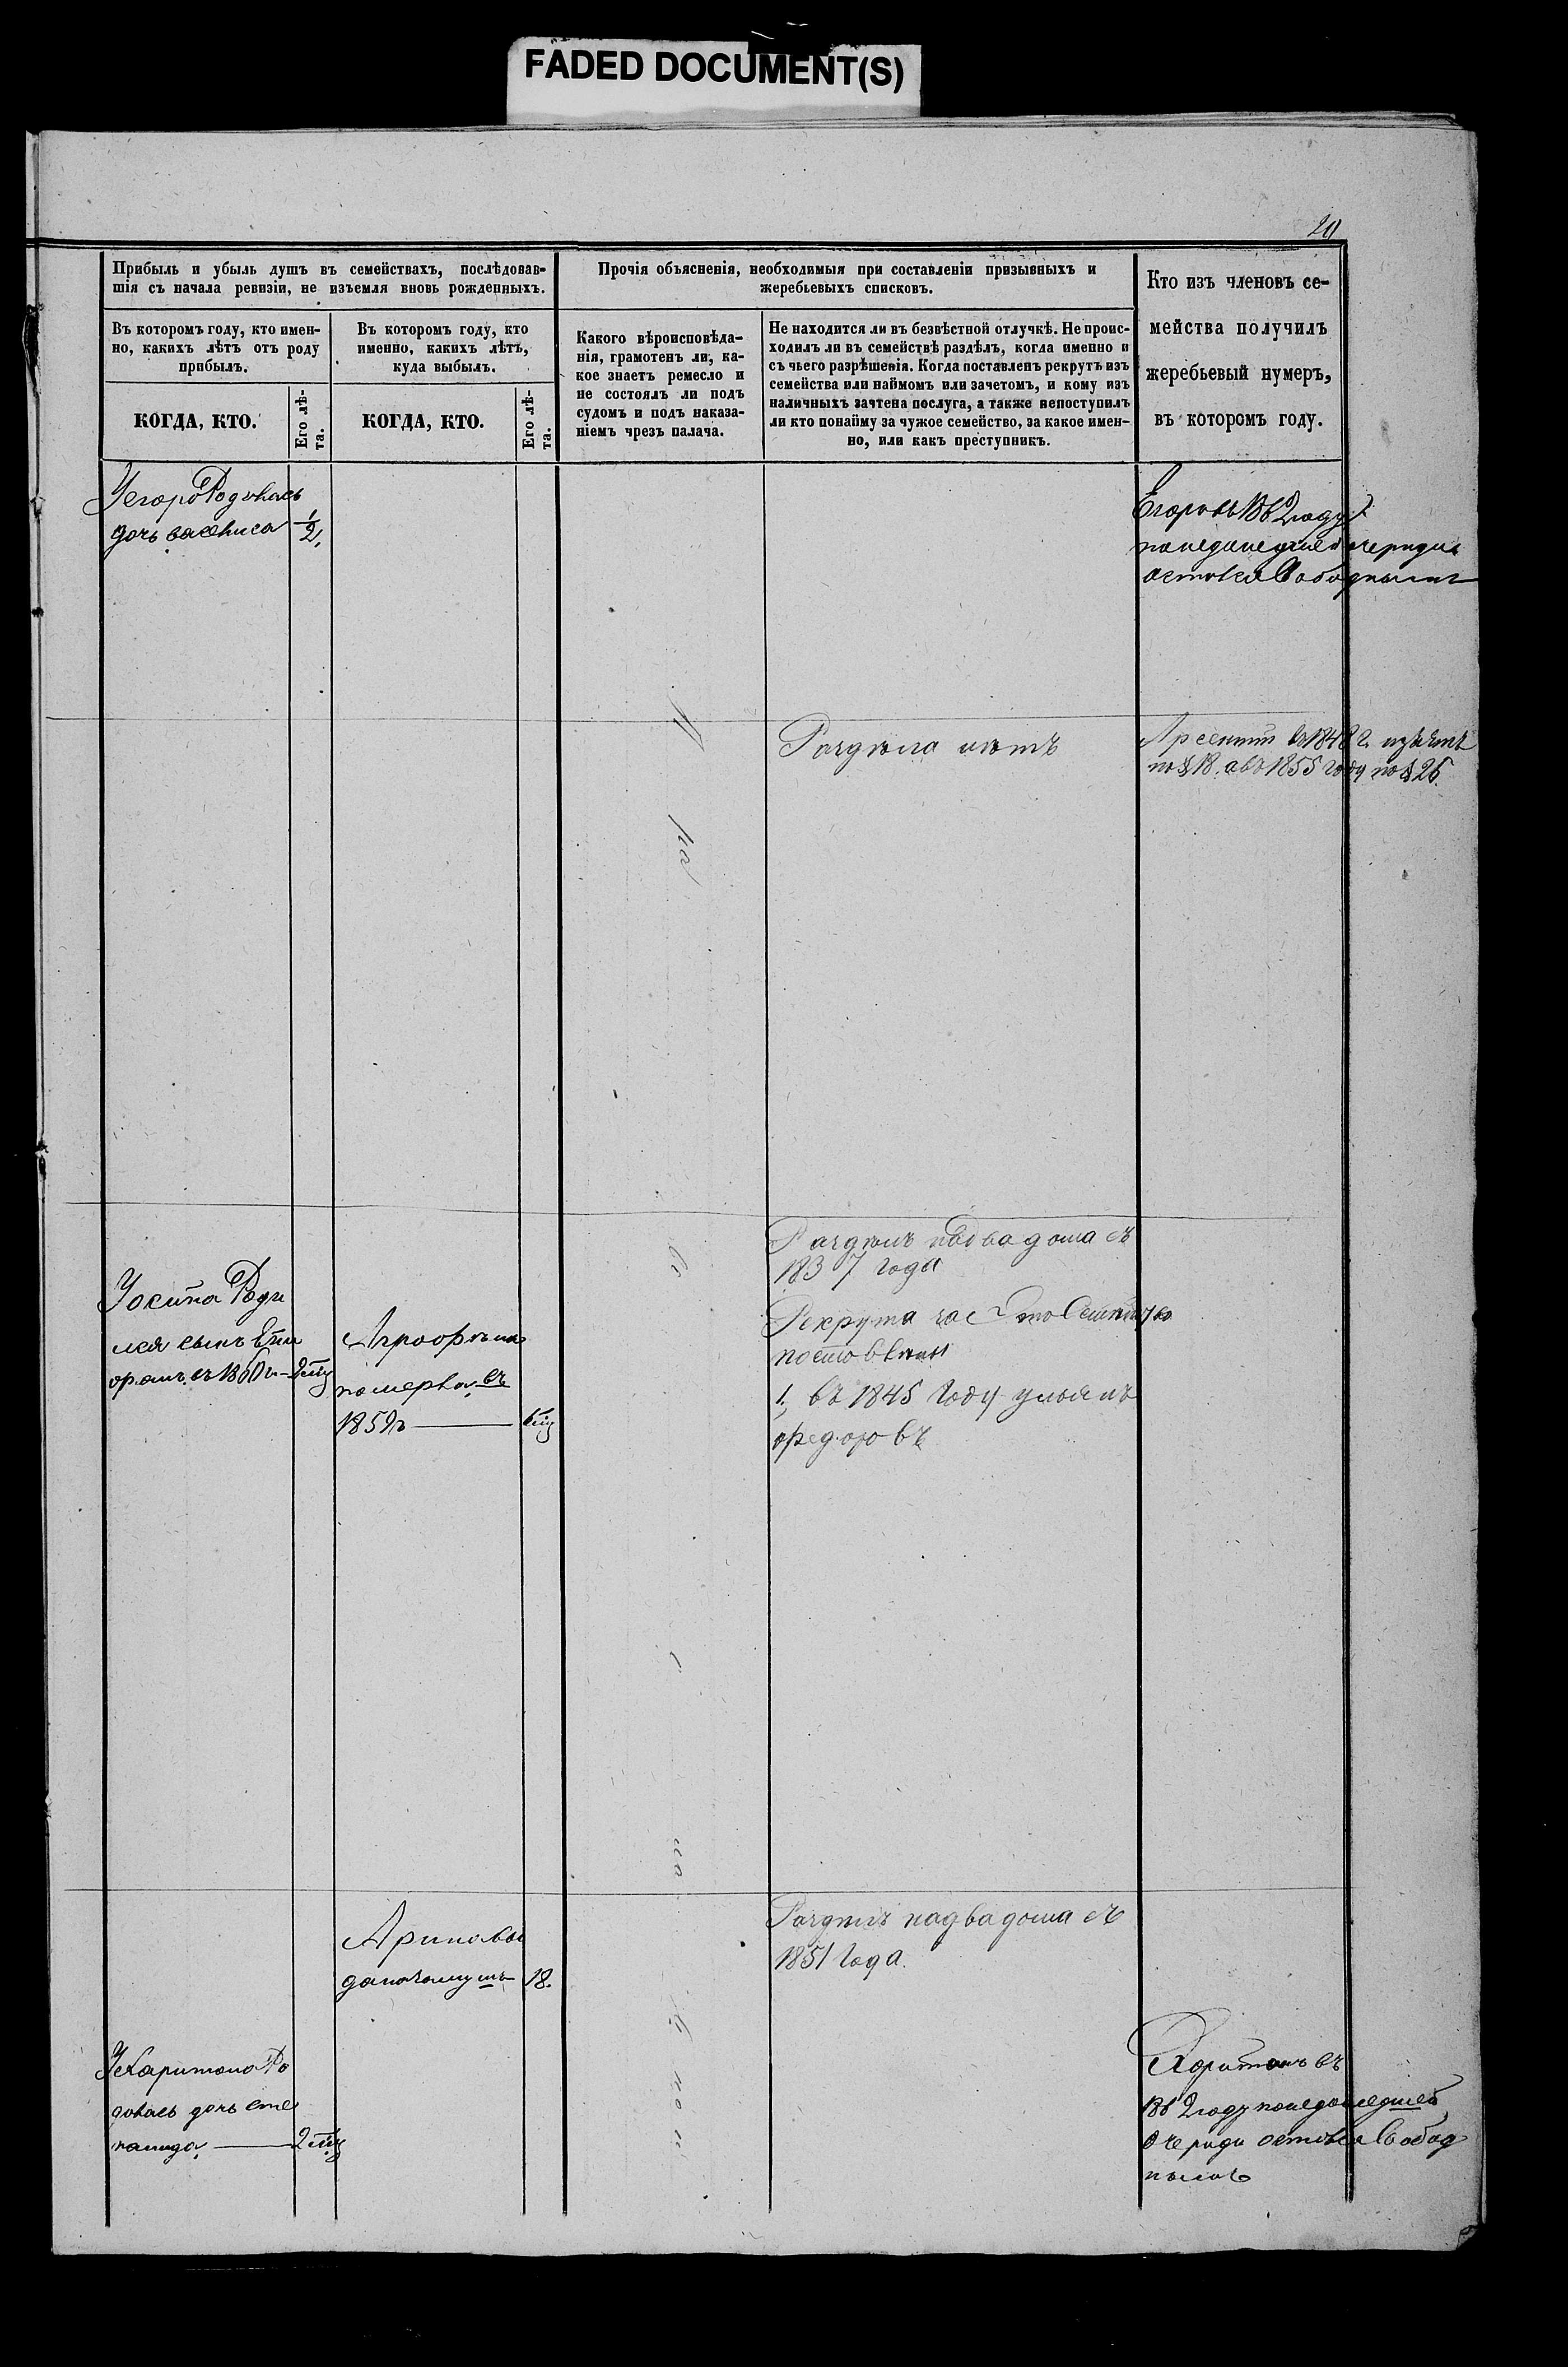 FADED DOCUMENT(S)
20
Прибыль и убыль душъ въ семействахъ, послѣдовав-
шія съ начала ревизіи, не изъемля вновь рожденныхъ.
Прочія объясненія, необходимыя при составленіи призывныхъ и
жеребьевыхъ списковъ.
Кто изъ членовъ се-
мейства получилъ
жеребьевый нумеръ,
въ которомъ году.
Въ которомъ году, кто имен-
но, какихъ лѣтъ отъ роду
прибылъ.
Въ которомъ году, кто
именно, какихъ лѣтъ,
куда выбылъ.
Какого вѣроисповѣда-
нія, грамотенъ ли, ка-
кое знаетъ ремесло и
не состоялъ ли подъ
судомъ и подъ наказа-
ніемъ чрезъ палача.
Не находится ли въ безвѣстной отлучкѣ. Не проис-
ходилъ ли въ семействѣ раздѣлъ, когда именно и
съ чьего разрѣшенія. Когда поставленъ рекрутъ изъ
семейства или наймомъ или зачетомъ, и кому изъ
наличныхъ зачтена послуга, а также непоступилъ
ли кто понайму за чужое семейство, за какое имен-
но, или какъ преступникъ.
КОГДА, КТО.
Его лѣ-
та.
КОГДА, КТО.
Его лѣ-
та.
УЕгора Родилась
дочь васлиса 1/2
Егоръ въ 1862 году
понедошедшей очереди
остовся Свободнымъ
Раздѣла нѣтъ
Арсентій въ 1848 г. изъятъ
по § 18. авъ 1855 году по § 25.
Раздѣлъ надва дома съ
1837 года
УОсипа Роди
лся сынъ
въ 1860 г.
Агрофѣна
померла въ
1859 г.
Рекрута
1, въ 1845 году ульянъ
федоровъ
Раздѣлъ надва дома съ
1851 года.
Арина вы
дана замужъ 18.
УХаритона Ро
дилась дочь сте
панида
Харитонъ въ
1862 году понедошедшей
очереди остовся Свобод
нымъ